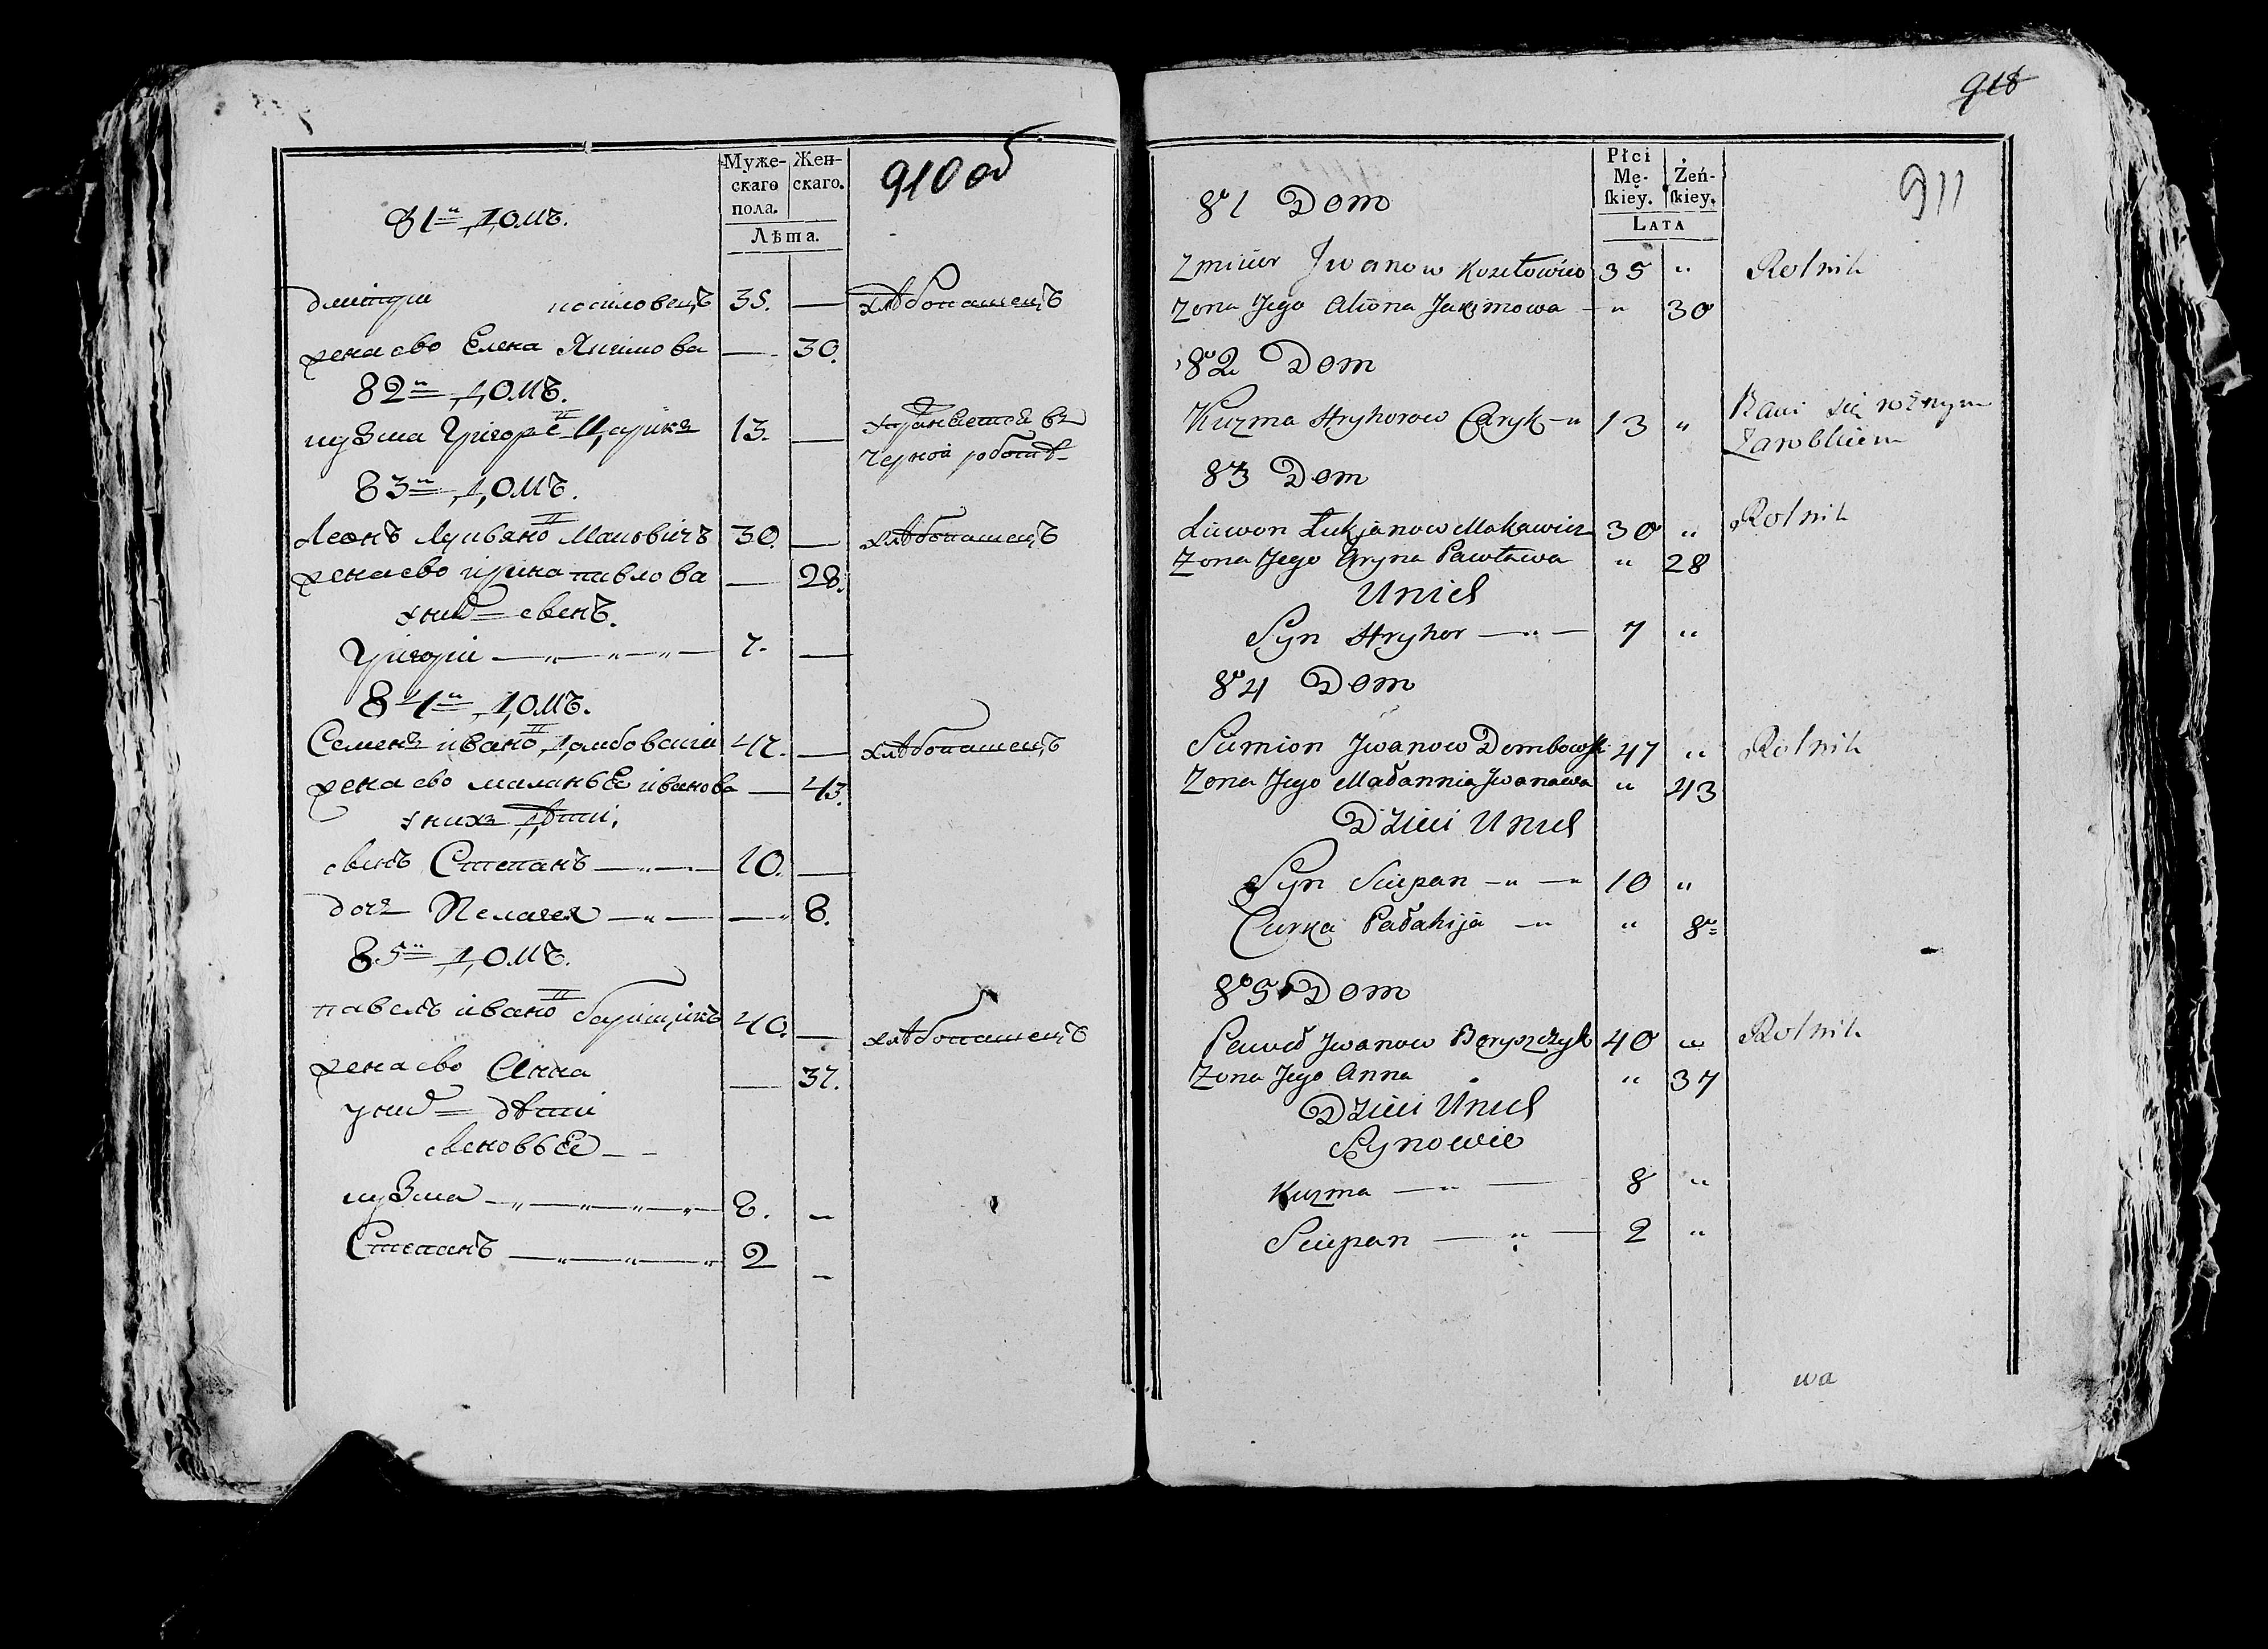 Муже-
скаго
пола.
Жен-
скаго.
Лѣта.
910 об
81й домъ.
дмитри 35. — хлѣбопашецъ
жена ево Елена Якимова — 30.
82й домъ.
кузма Григоре Царикъ 13. —
черной роботѣ
83й домъ.
Леонъ Лукьяно Мацовичъ 30. — хлѣбопашецъ
жена ево ирина павлова — 28.
у них сынъ.
Григори — „ — „ — „ — 7. —
84й домъ.
Семенъ ивано домбовски 47. — хлѣбопашецъ
жена ево маланья иванова — 43.
у нихъ дѣти.
сынъ Степанъ — „ — 10. —
дочь Пелагея — „ — — „ 8.
85й домъ.
павелъ ивано барищикъ 40. — хлѣбопашецъ
жена ево Анна — 37.
у них дѣти
сыновья — —
кузма — „ — „ — „ — „ — 8. —
Степанъ — „ — „ — „ 2 —
918
911
Płci
Mę-
ſkiey.
Żeń-
ſkiey.
LATA
81 Dom
Zmicier Jwanow 35 „ Rolnik
Zona Jego Aliona Jakimowa — „ 30
82 Dom
Kuzma Hryhorow Caryk — „ 13 „ Bawi się rożnym
Zarobkiem
83 Dom
Liewon Łukjanow Makawicz 30 „ Rolnik
Zona Jego Aryna Pawława „ 28
Unich
Syn Hryhor — „ — 7 „
84 Dom
Siemion Jwanow Dombowsk: 47 „ Rolnik
Zona Jego Małannia Jwanawa „ 43
Dzieci Unich
Syn Sciepan — „ — „ 10 „
Curka Pałahija — „ „ 8
85 Dom
Paweł Jwanow Boryszczyk 40 „ Rolnik
Zona Jego Anna „ 37
Dzieci Unich
Synowie
Kuzma — „ — 8 „
Sciepan — „ — 2 „
wa